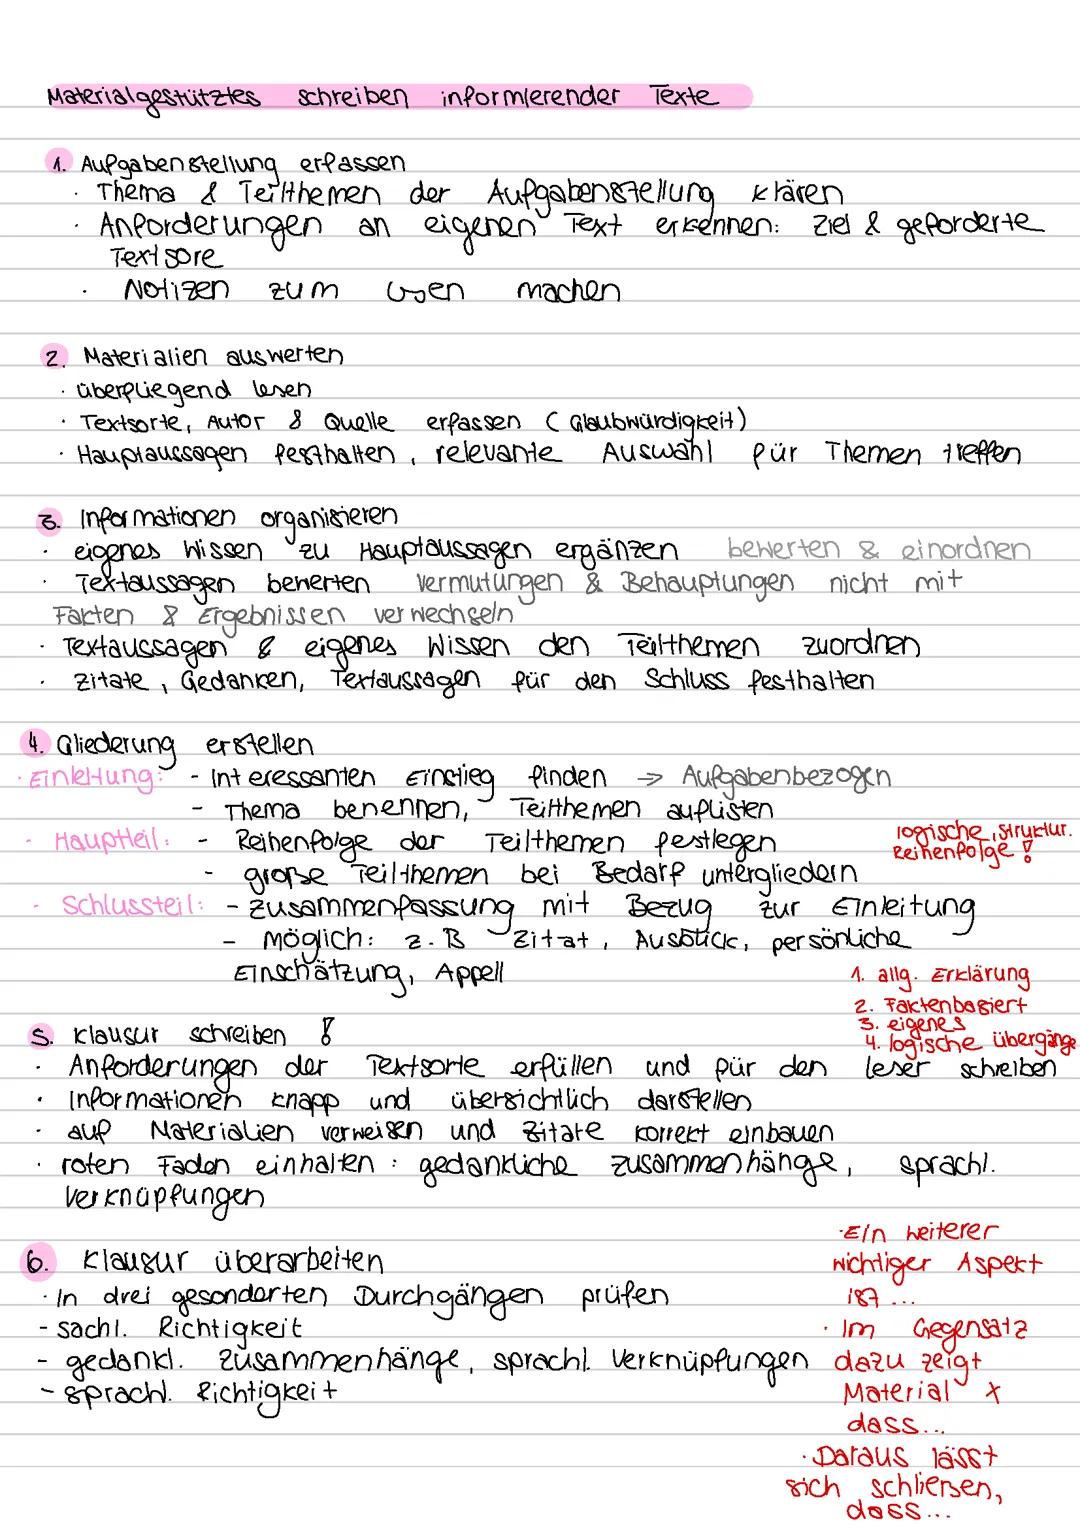 Materialgestütztes schreiben informierender Texte
1. Aufgabenstellung erfassen
· Thema & Teilthemen der Aufgabenstellung klären
· Anforderungen an eigenen Text erkennen: Ziel & geforderte
Textsore
· Notizen zum Lesen machen
2. Materialien auswerten
· überfliegend lesen
· Textsorte, Autor & Quelle erfassen (Glaubwürdigkeit)
· Hauptaussagen festhalten, relevante Auswahl für Themen treffen
3. Informationen organisieren
· eigenes Wissen zu Hauptaussagen ergänzen bewerten & einordnen
· Textaussagen bewerten Vermutungen & Behauptungen nicht mit
Fakten & Ergebnissen verwechseln
· Textaussagen & eigenes Wissen den Teilthemen zuordnen
· Zitate, Gedanken, Textaussagen für den Schluss festhalten
4. Gliederung erstellen
· Einleitung: - Interessanten Einstieg finden → Aufgabenbezogen
- Thema benennen, Teilthemen auflisten
· Hauptteil: - Reihenfolge der Teilthemen festlegen
logische, struktur.
Reihenfolge!
- große Teilthemen bei Bedarf untergliedern
· Schlussteil: - Zusammenfassung mit Bezug zur Einleitung
- Möglich: z.B Zitat, Ausblick, persönliche
Einschätzung, Appell
1. allg. Erklärung
2. Faktenbasiert
3. eigenes
4. logische übergänge
5. Klausur schreiben !
· Anforderungen der Textsorte erfüllen und für den leser schreiben
· Informationen knapp und übersichtlich darstellen
· auf Materialien verweisen und Zitate korrekt einbauen
· roten Faden einhalten: gedankliche zusammenhänge, sprachl.
Verknüpfungen
6. Klausur überarbeiten
· In drei gesonderten Durchgängen prüfen
- sachl. Richtigkeit
- gedankl. Zusammenhänge, sprachl. Verknüpfungen
- sprachl. Richtigkeit
· Ein weiterer
wichtiger Aspekt
ist ...
· Im Gegensatz
dazu zeigt
Material x
dass...
· Daraus lässt
sich schließen,
dass...